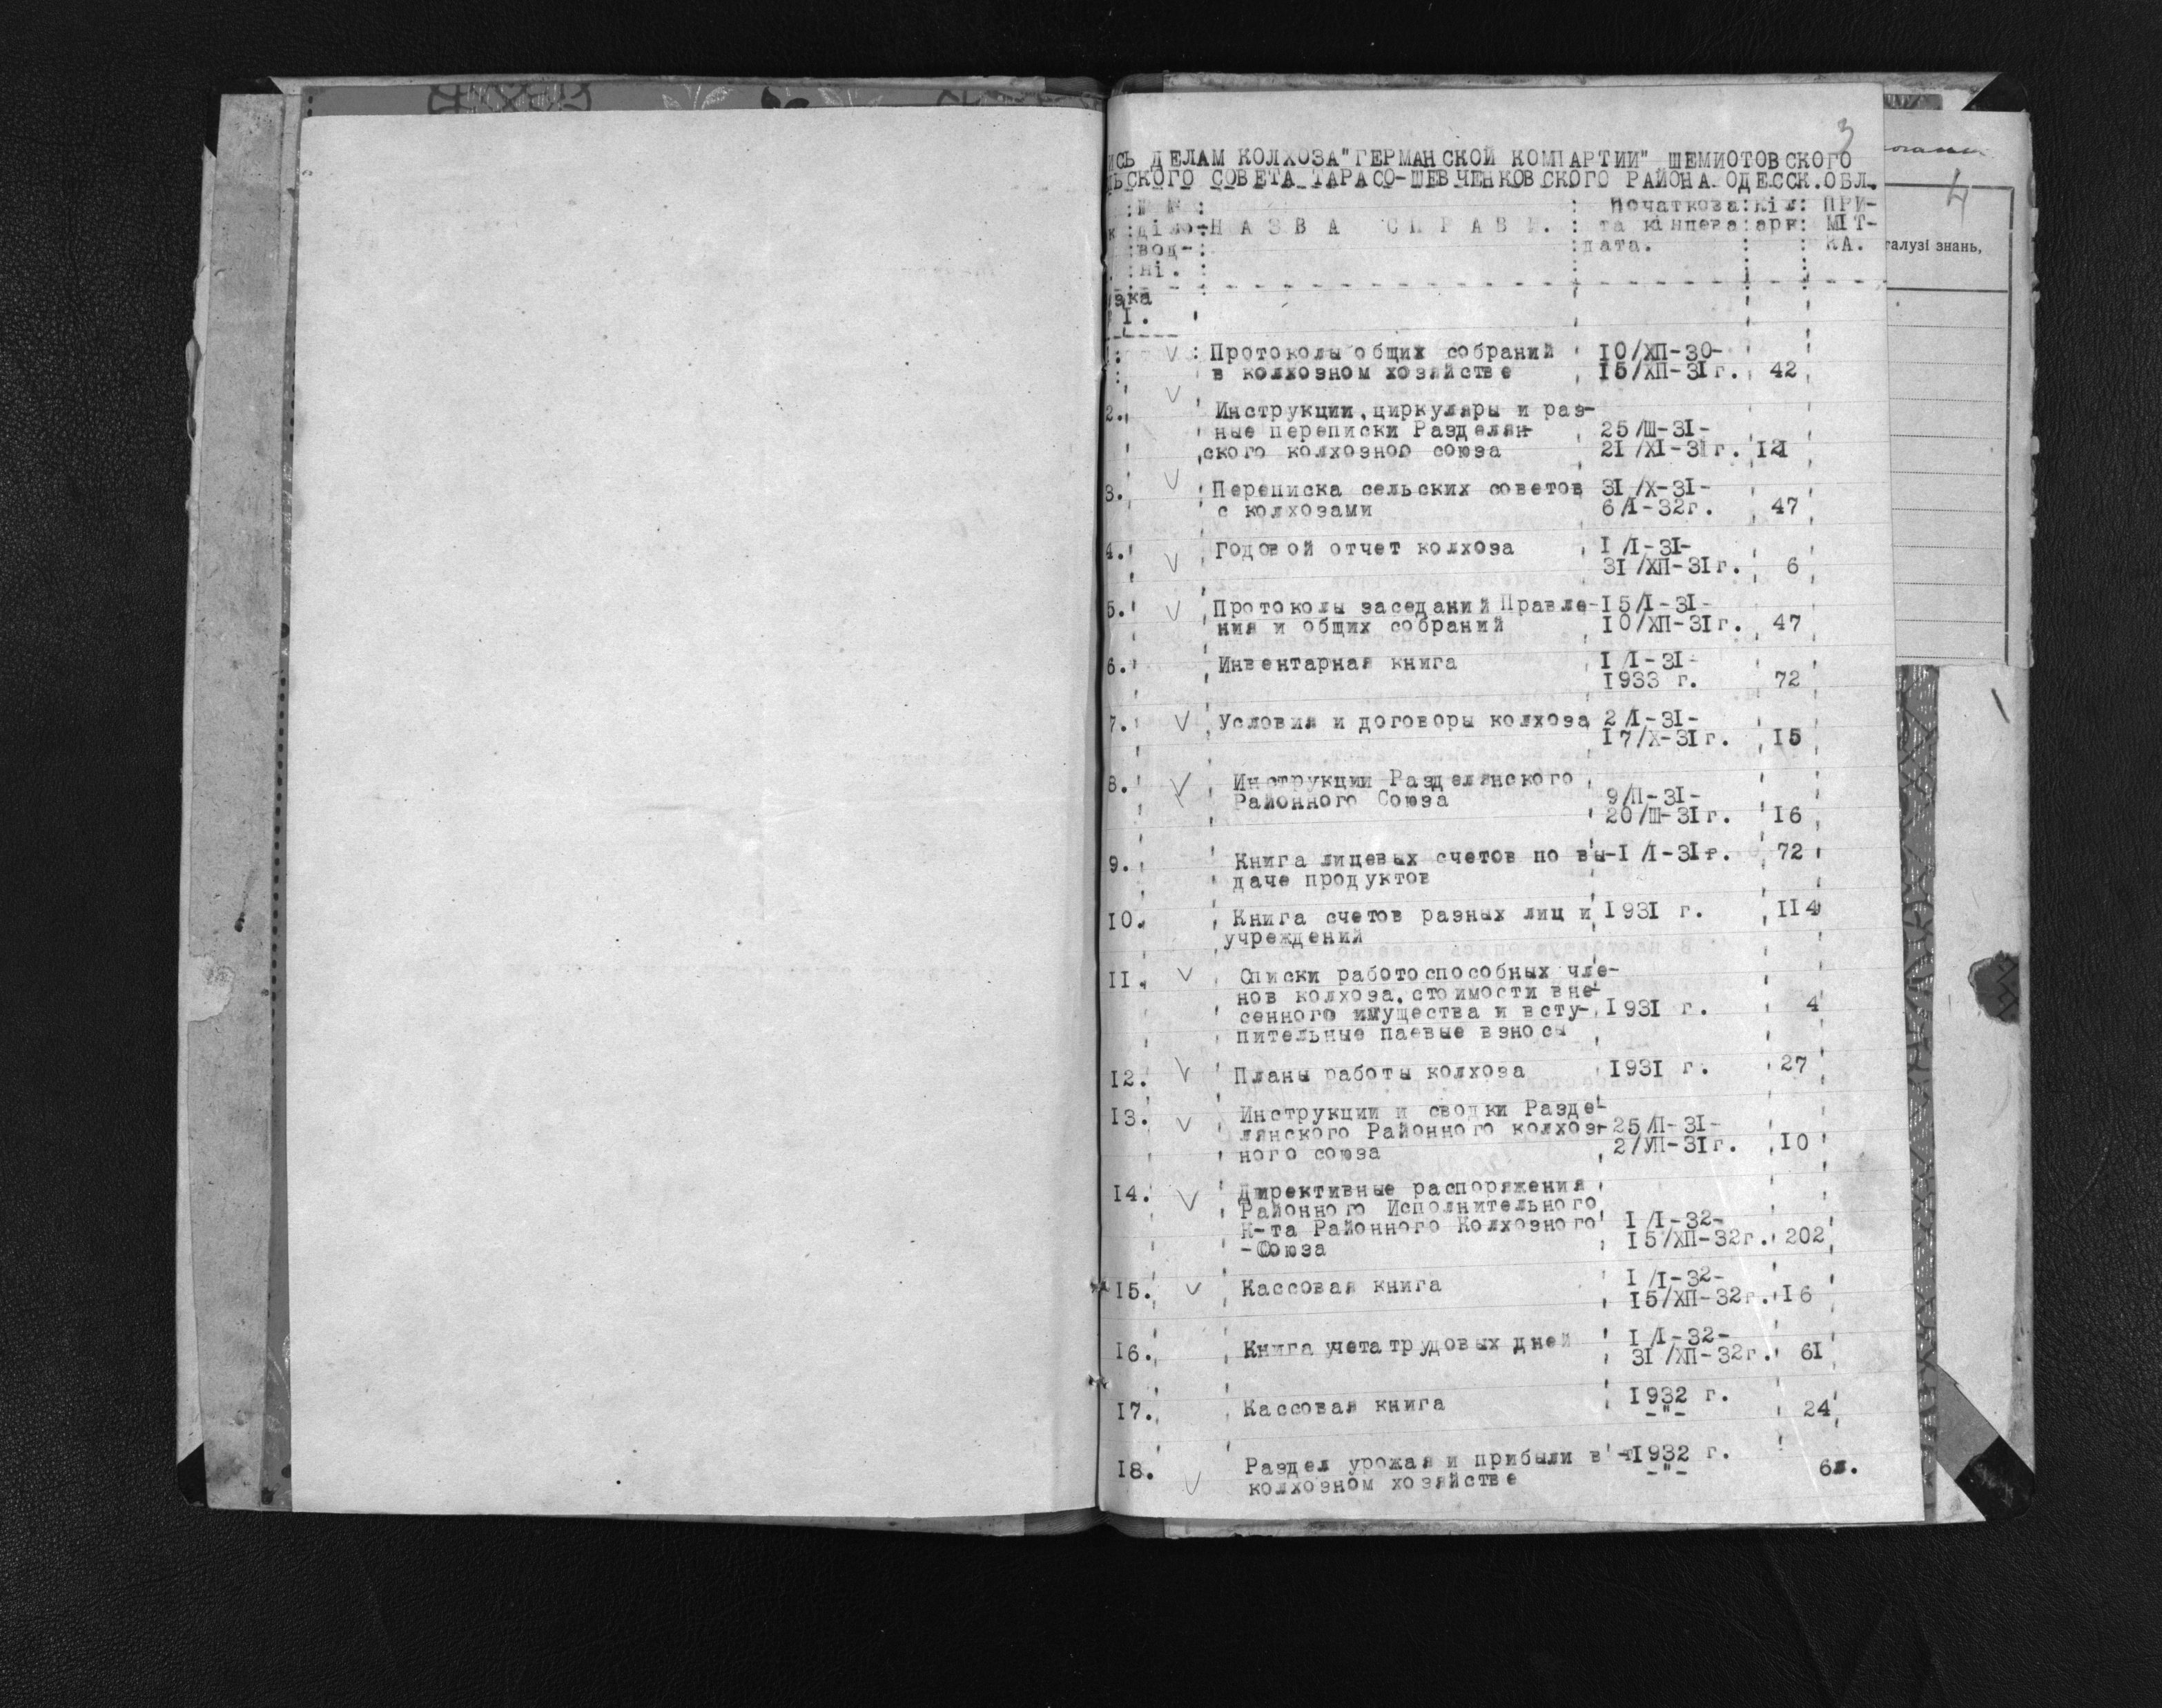 3
ИСЬ ДЕЛАМ КОЛХОЗА"ГЕРМАНСКОЙ КОМПАРТИИ" ШЕМИОТОВСКОГО
ЬСКОГО СОВЕТА ТАРАСО-ШЕВЧЕНКОВСКОГО РАЙОНА ОДЕССК.ОБЛ.
№ № : : Початкова: кіл: ПРИ-
к : діло-: НАЗВА СПРАВИ. : та кінцева: арк: МІТ-
: вод-: : дата. : : КА.
: ні. :
зка
I.
I. Протоколы общих собраний 10/ХП-30-
в колхозном хозяйстве 15/ХП-31г. 42
2. Инструкции, циркуляры и раз-
ные переписки Разделян- 25/Ш-31-
ского колхозного союза 21/XI-31г. 121
3. Переписка сельских советов 31/Х-31-
с колхозами 6/I-32г. 47
4. Годовой отчет колхоза I/I-31-
31/ХП-31г. 6
5. Протоколы заседаний Правле-15/I-31-
ния и общих собраний 10/ХП-31г. 47
6. Инвентарная книга I/I-31-
1933 г. 72
7. Условия и договоры колхоза 2/I-31-
17/Х-31г. 15
8. Инструкции Разделянского
Районного Союза 9/П-31-
20/Ш-31г. 16
9. Книга лицевых счетов по вы-I/I-31г. 72
даче продуктов
10. Книга счетов разных лиц и 1931 г. 114
учреждений
11. Списки работоспособных чле-
нов колхоза, стоимости вне-
сенного имущества и всту- 1931 г. 4
пительные паевые взносы
12. Планы работы колхоза 1931 г. 27
13. Инструкции и сводки Разде-
лянского Районного колхоз-25/П-31-
ного союза 2/УП-31г. 10
14. Директивные распоряжения
Районного Исполнительного
К-та Районного Колхозного I/I-32-
-Союза 15/ХП-32г. 202
15. Кассовая книга I/I-32-
15/ХП-32г. 16
16. Книга учета трудовых дней I/I-32-
31/ХП-32г. 61
17. Кассовая книга 1932 г.
-"- 24
18. Раздел урожая и прибыли в 1932 г.
колхозном хозяйстве -"- 6л.
4
галузі знань,